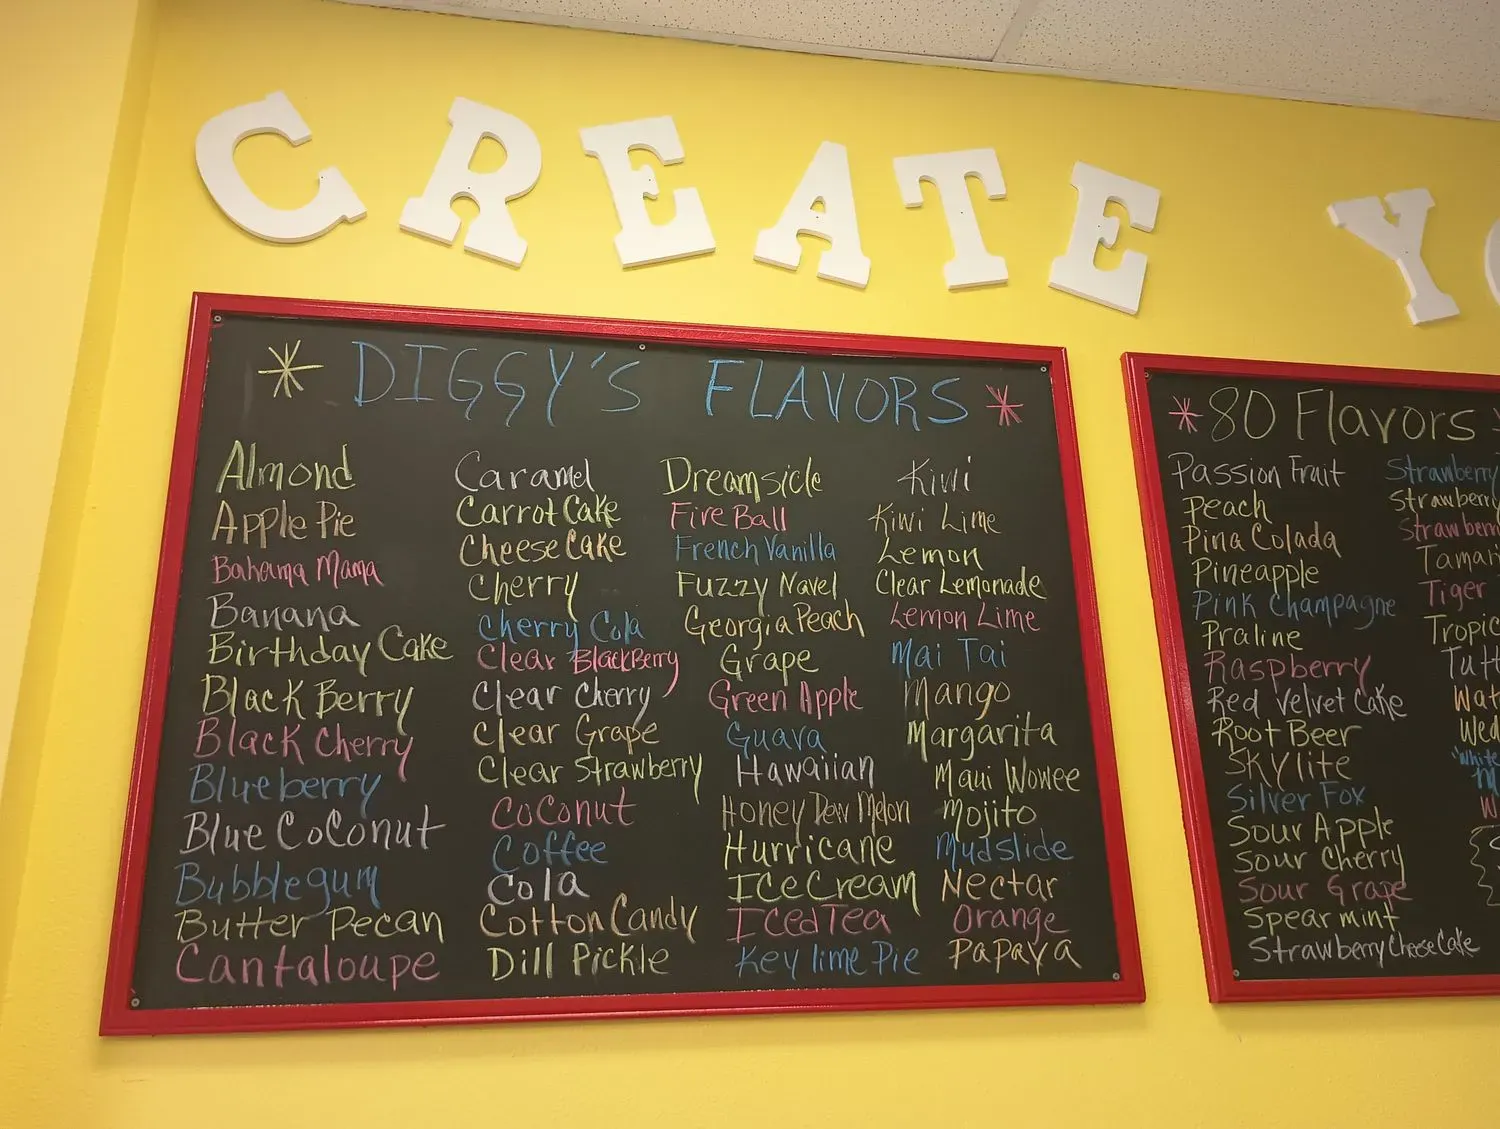 CREATE YO
* DIGGY'S FLAVORS *
Almond
Apple Pie
Bahama Mama
Banana
Birthday Cake
Black Berry
Black Cherry
Blueberry
Blue Coconut
Bubblegum
Butter Pecan
Cantaloupe
Caramel
Carrot Cake
Cheese Cake
Cherry
Cherry Cola
Clear BlackBerry
Clear Cherry
Clear Grape
Clear Strawberry
Coconut
Coffee
Cola
Cotton Candy
Dill Pickle
Dreamsicle
Fire Ball
French Vanilla
Fuzzy Navel
Georgia Peach
Grape
Green Apple
Guava
Hawaiian
Honey Dew Melon
Hurricane
Ice Cream
Iced Tea
Key lime Pie
Kiwi
Kiwi Lime
Lemon
Clear Lemonade
Lemon Lime
Mai Tai
Mango
Margarita
Maui Wowee
Mojito
Mudslide
Nectar
Orange
Papaya
* 80 Flavors
Passion Fruit
Peach
Pina Colada
Pineapple
Pink Champagne
Praline
Raspberry
Red Velvet Cake
Root Beer
Skylite
Silver Fox
Sour Apple
Sour Cherry
Sour Grape
Spearmint
Strawberry Cheese Cake
Strawberry
Strawberry
Strawberr
Tamari
Tiger
Tropic
Tutt
Wat
Wed
"White